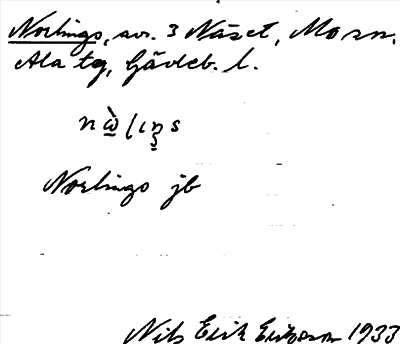 Norlings, av. 3 Näset, Mo sn.
Ala tg, Gävleb. l.
Norlings jb
Nils Erik Eriksson 1933